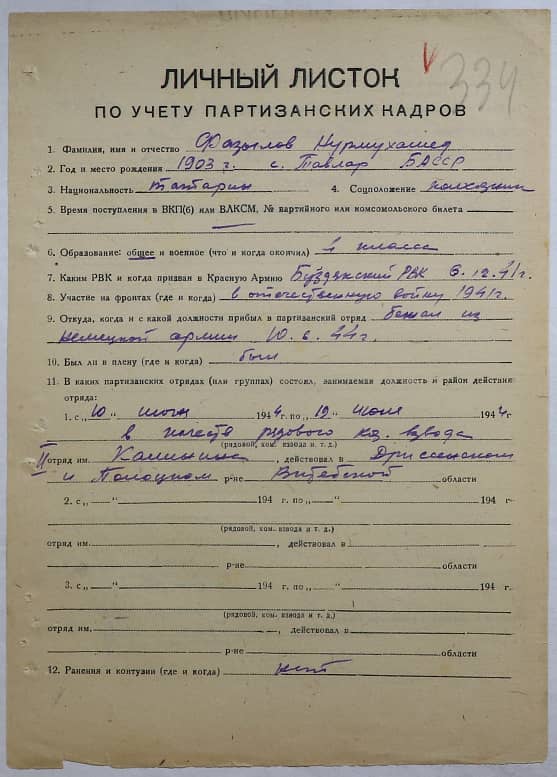 334
ЛИЧНЫЙ ЛИСТОК
ПО УЧЕТУ ПАРТИЗАНСКИХ КАДРОВ
1. Фамилия, имя и отчество Фазылов Нурмухамед
2. Год и место рождения 1903 г. с. Тавлар БАССР
3. Национальность татарин 4. Соцположение колхозник
5. Время поступления в ВКП(б) или ВЛКСМ, № партийного или комсомольского билета
—
6. Образование: общее и военное (что и когда окончил) 4 класса
7. Каким РВК и когда призван в Красную Армию Буздякский РВК 6.12.41г.
8. Участие на фронтах (где и когда) в отечественную войну 1941г.
9. Откуда, когда и с какой должности прибыл в партизанский отряд бежал из
немецкой армии 10.6.44г.
10. Был ли в плену (где и когда) был
11. В каких партизанских отрядах (или группах) состоял, занимаемая должность и район действия
отряда:
1. с „10“ июня 1944 г. по „19“ июля 1944 г.
в качеств рядового взвода
(рядовой, ком. взвода и т. д.)
II отряд им. Калинина, действовал в Дриссенском
и Полоцком р-не Витебской области
2. с „ “ 194 г. по „ “ 194 г.
(рядовой, ком. взвода и т. д.)
отряд им. , действовал в
р-не области
3. с „ “ 194 г. по „ “ 194 г.
(рядовой, ком. взвода и т. д.)
отряд им. , действовал в
р-не области
12. Ранения и контузии (где и когда) нет